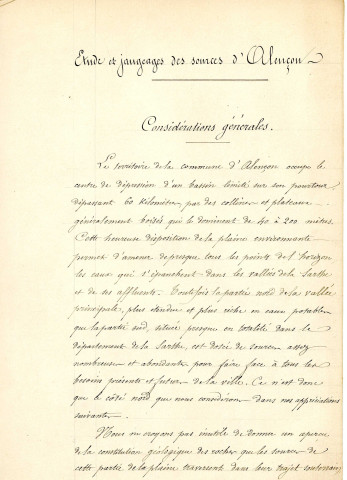 Etude et jaugeages des sources d'Alençon
Considérations générales.
Le territoire de la commune d'Alençon occupe le
centre de dépression d'un bassin limité sur son pourtour
dépassant 60 kilomètres par des collines et plateaux
généralement boisés qui le dominent de 40 à 200 mètres.
Cette heureuse disposition de la plaine environnante
permet d'amener de presque tous les points de l'horizon
les eaux qui s'épanchent dans les vallées de la Sarthe
et de ses affluents. Toutefois la partie nord de la vallée
principale, plus étendue et plus riche en eaux potables
que la partie sud, située presque en totalité dans le
département de la Sarthe, est dotée de sources assez
nombreuses et abondantes pour faire face à tous les
besoins présents et futurs de la ville. Ce n'est donc
que le côté nord que nous considérons dans nos appréciations
suivantes.
Nous ne croyons pas inutile de donner un aperçu
de la constitution géologique des roches que les sources
de cette partie de la plaine traversent dans leur trajet souterrain,